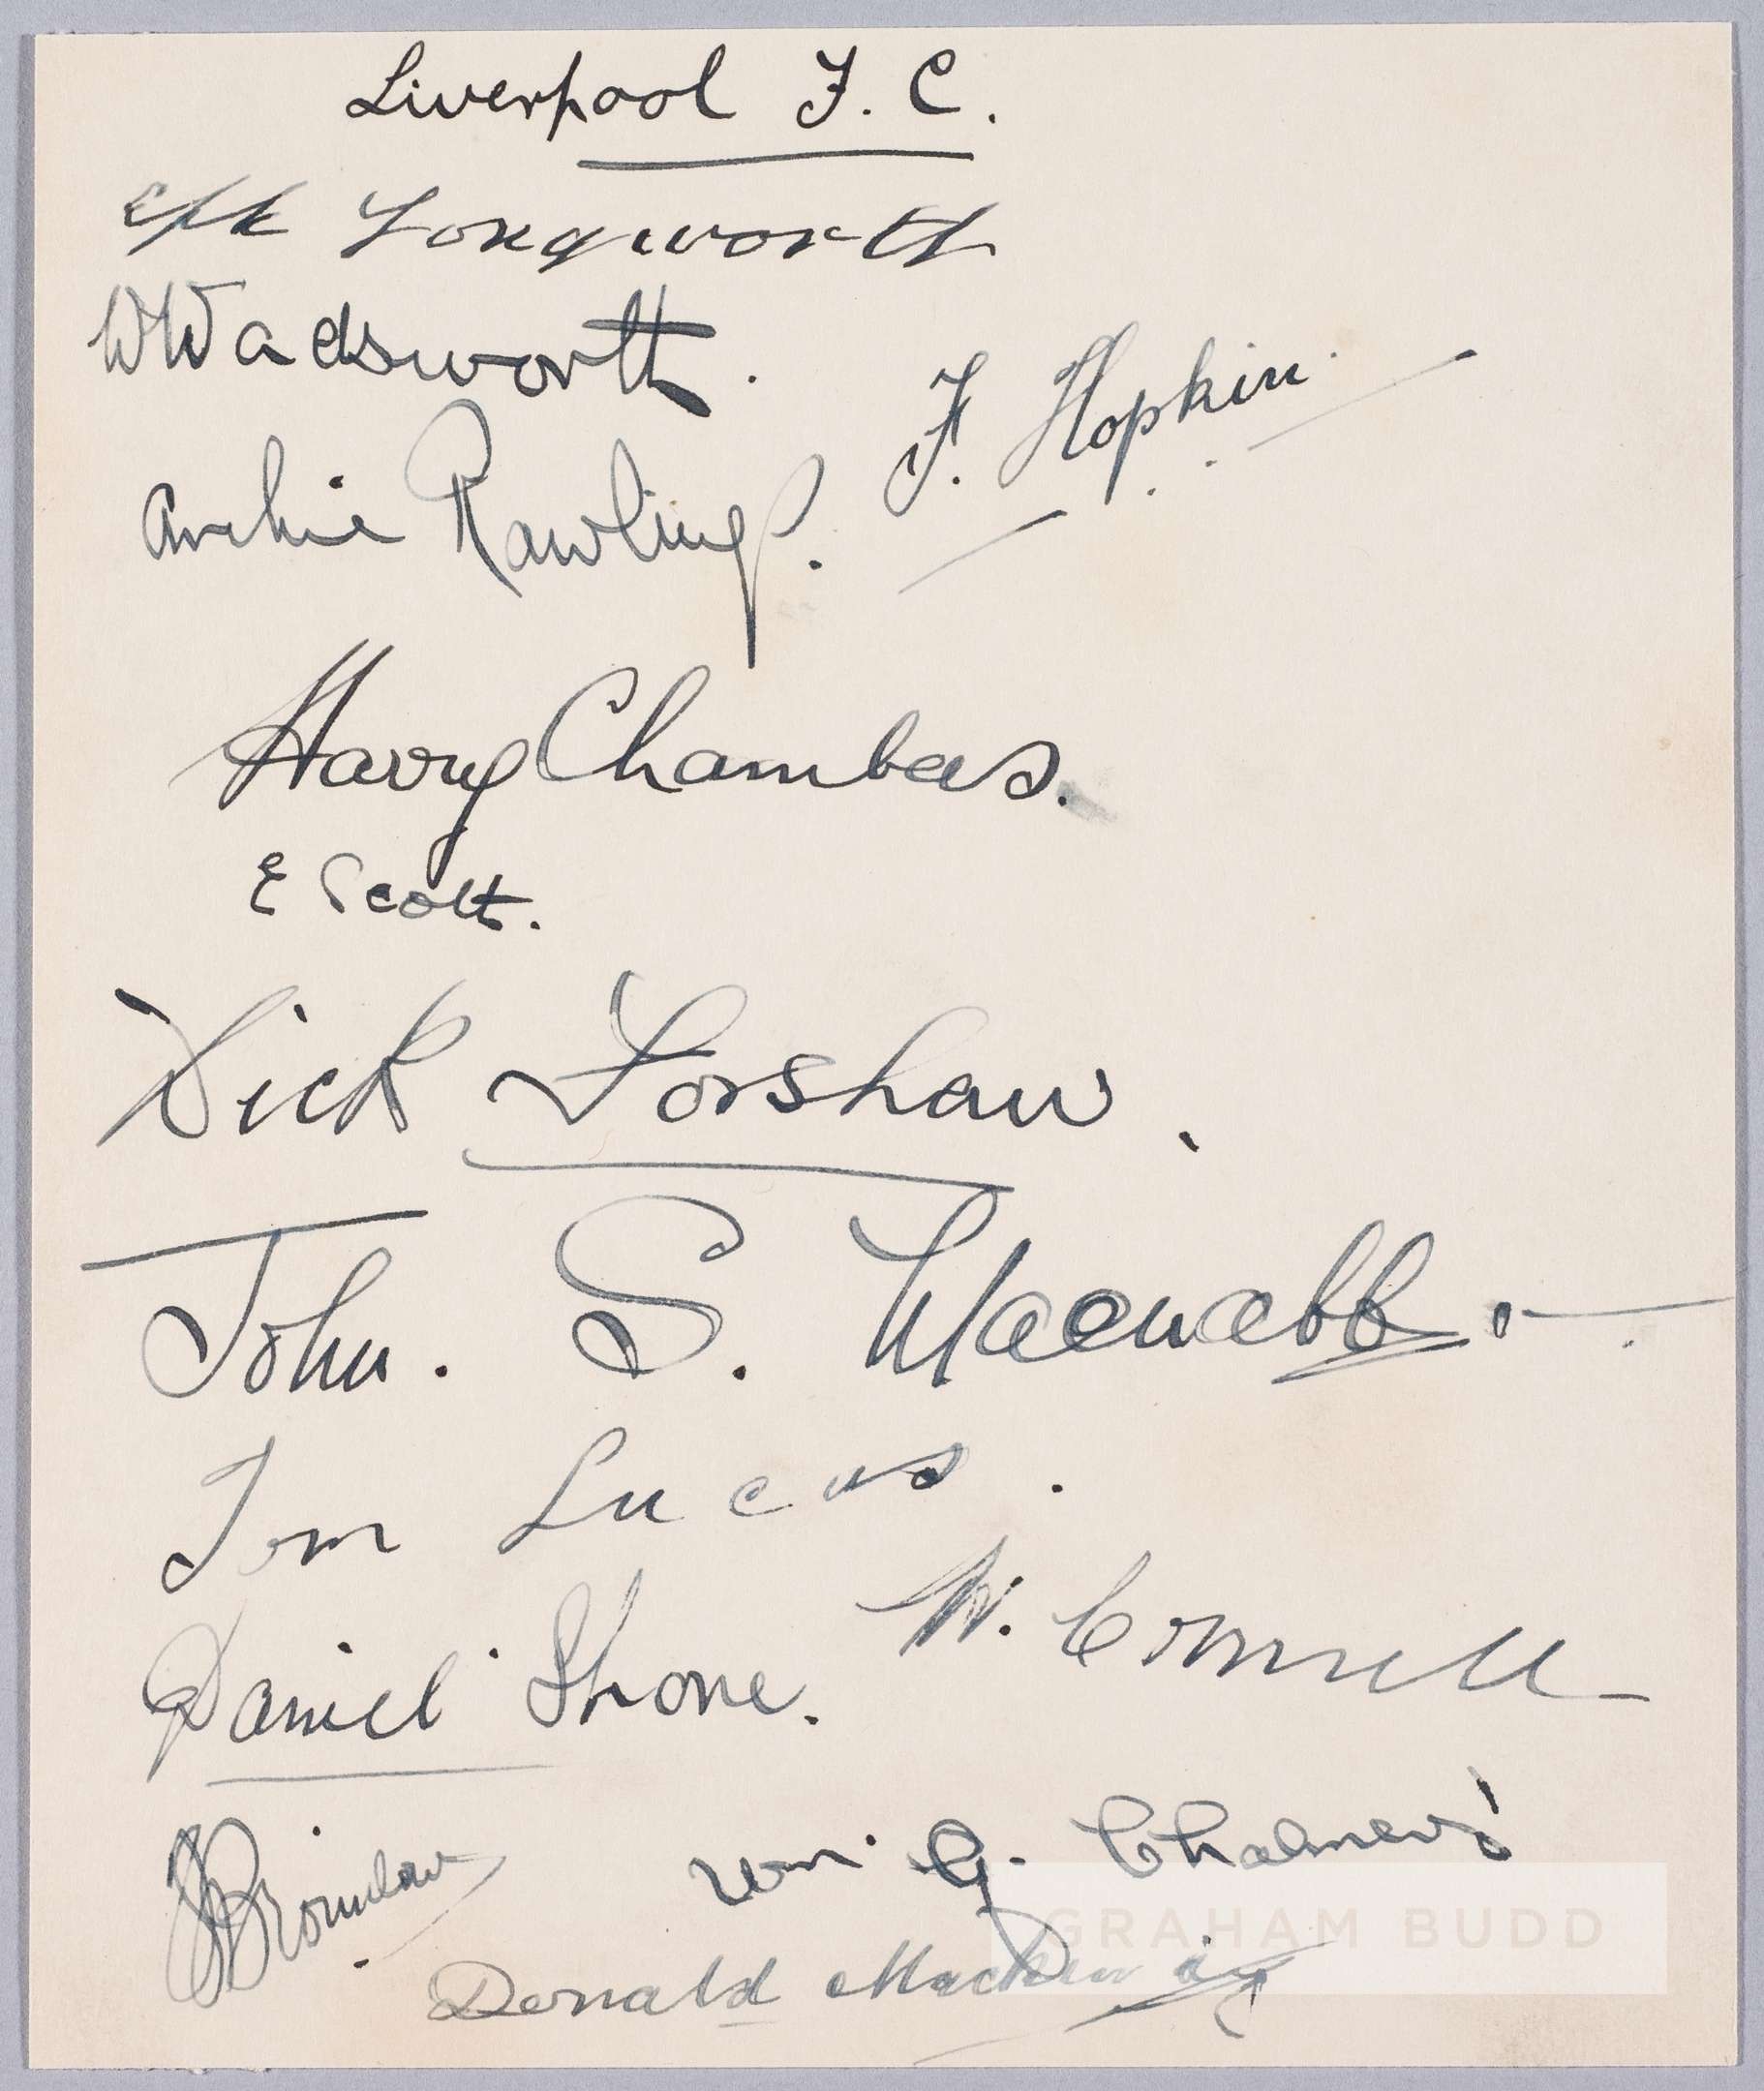 Liverpool F. C.
Eph Longworth
W Wadsworth.
F. Hopkin.
Archie Rawlings.
Harry Chambers.
E Scott.
Dick Forshaw.
John. S. Macnabb.
Tom Lucas.
W. Connell
Daniel Shone.
Wm. G. Chalmers
Bromilow
Donald Mackinlay
GRAHAM BUDD